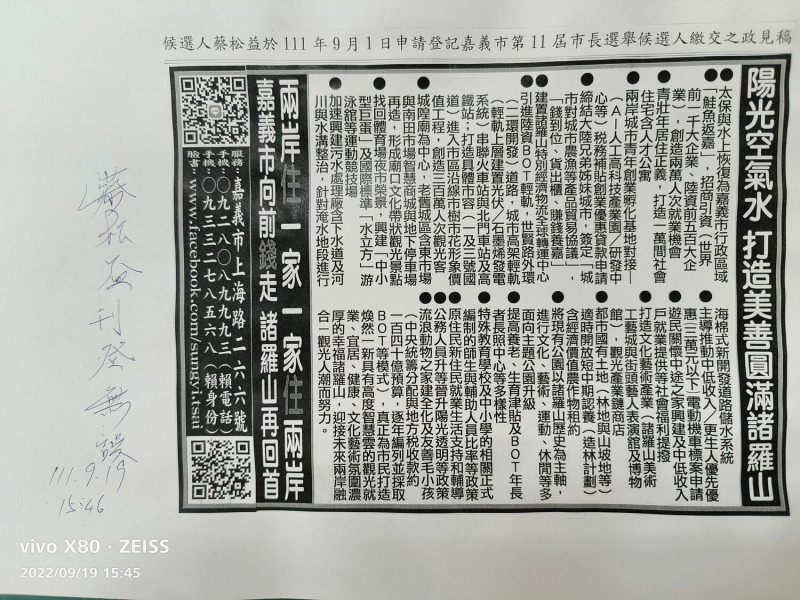 候選人蔡松益於111年9月1日申請登記嘉義市第11屆市長選舉候選人繳交之政見稿
陽光空氣水 打造美善圓滿諸羅山
●太保與水上恢復為嘉義市行政區域
●「鮭魚返嘉」，招商引資（世界
前一千大企業、陸資前五百大企
業），創造兩萬人次就業機會
●青壯年居住正義，打造一萬間社會
住宅含人才公寓
●兩岸城市青年創業孵化基地對接—
（AI—人工高科技產業園／研發中
心等）稅務補貼創業優惠貸款申請
●締結大陸兄弟姊妹城市，簽定「城
市對城市農漁等產品貿易協議」，
「錢到位、貨出櫃、賺錢養嘉」
●建置諸羅山特別經濟物流全球轉運中心
●引進陸資BOT輕軌，世賢路外環
（二環開發）道路，城市高架輕軌
（輕軌上層建置光伏／石墨烯發電
系統）串聯火車站與北門車站及高
鐵站；打造具體市容（一及三號國
道）進入市區沿線市樹市花形象價
值工程，創造三百萬人次觀光客
●城隍廟為中心，老舊城區含東市場
與南田市場智慧商城與地下停車場
再造，形成廟口文化帶狀觀光景點
●找回體育場夜市榮景，興建「中小
型巨蛋」及國際標準「水立方」游
泳館等運動競技場
●加速興建污水處理廠含下水道及河
川與水溝整治，針對淹水地段進行
海棉式新開發道路儲水系統
●主導推動中低收入／更生人優先優
惠（三萬元以下）電動機車標案申請
●遊民關懷中途之家興建及中低收入
戶就業提供等社會福利提撥
●打造文化藝術產業（諸羅山美術
工藝城與街頭藝人表演館及博物
館），觀光產業鏈商店
●都市國有土地（林地與山坡地等）
適時開放短中期認養（造林計劃）
含經濟價值農作物租約
●將現有公園以諸羅山歷史為主軸，
進行文化、藝術、運動、休閒等多
面向主題公園升級
●提高養老、生育津貼及BOT年長
者長照中心等多樣性
●特殊教育學校及中小學的相關正式
編制的師生與輔助人員比率等政策
●原住民新住民就業生活支持和輔導
●公務人員升等晉升陽光透明等政策
●流浪動物之家建全化及友善毛小孩
（中央統籌分配與地方稅收款約
一百四十億預算，逐年編列並採取
BOT等模式），真正為市民打造
煥然一新具有高度智慧雲的觀光就
業、宜居、健康、文化藝術氛圍濃
厚的幸福諸羅山，迎接未來兩岸融
合—觀光人潮而努力。
兩岸住一家 一家住兩岸
嘉義市向前錢走 諸羅山再回首
服務：嘉義市上海路二六六號
手機：〇九二八〇八九九九三（賴電話）
手機：〇九三三二七八五六八（賴身份）
臉書：www.facebook.com/sungyi.tsai
蔡松益刊登無誤
111.9.19
15:46
vivo X80 · ZEISS
2022/09/19 15:45